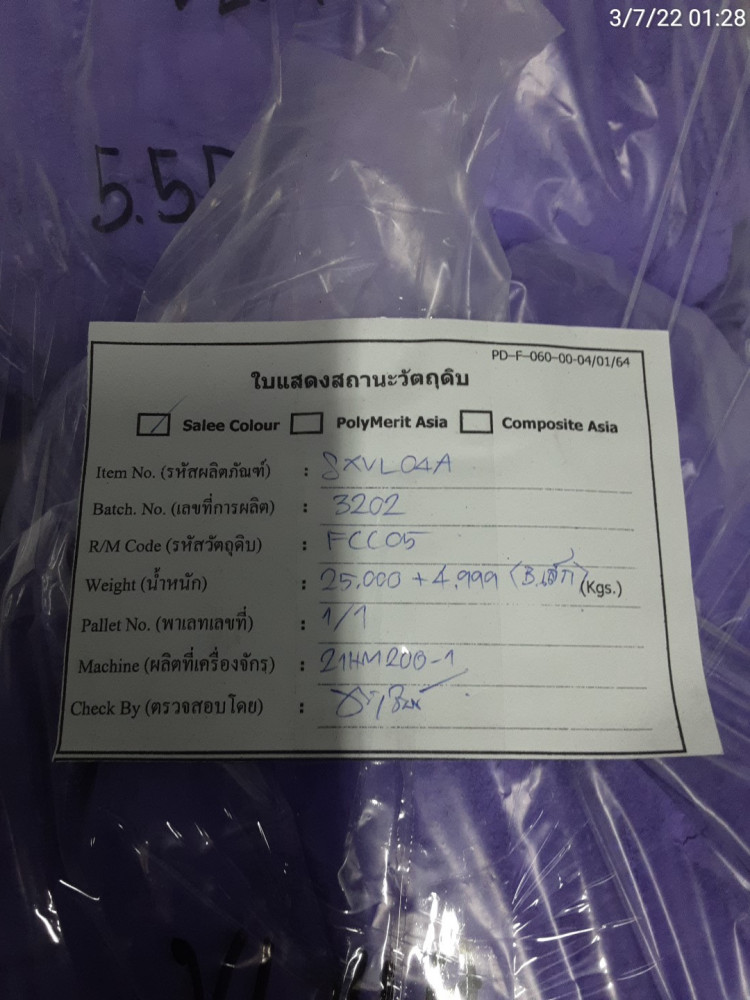 3/7/22 01:28
5.5
PD-F-060-00-04/01/64
ใบแสดงสถานะวัตถุดิบ
Salee Colour PolyMerit Asia Composite Asia
Item No. (รหัสผลิตภัณฑ์) : SXVL04A
Batch. No. (เลขที่การผลิต) : 3202
R/M Code (รหัสวัตถุดิบ) : FCC05
Weight (น้ำหนัก) : 25.000 + 4.999 (B.เศษ) (Kgs.)
Pallet No. (พาเลทเลขที่) : 1/1
Machine (ผลิตที่เครื่องจักร) : 21HM200-1
Check By (ตรวจสอบโดย) :